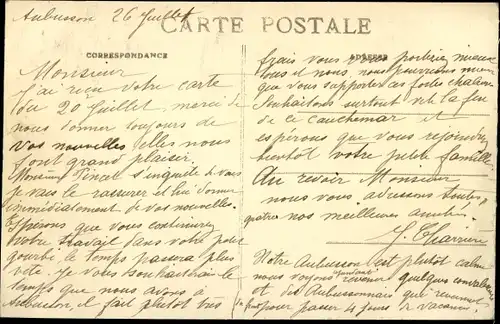 Aubusson 26 Juillet
CARTE POSTALE
CORRESPONDANCE
ADRESSE
Monsieur
J'ai reçu votre carte
du 20 Juillet, merci de
nous donner toujours de
vos nouvelles elles nous
font grand plaisir.
Monsieur s'inquiète de vous
je vais le rassurer et lui donner
immédiatement de vos nouvelles.
Espérons que vous continuerez
votre travail dans votre
le temps passera plus
vite. Je vous souhaiterais le
temps que nous avons à
Aubusson, il fait plutôt très
frais vous vous porteriez mieux
tous et nous, nous pourrions
que vous supportez ces fortes chaleurs
Souhaitons surtout vite la fin
de ce cauchemar et
espérons que vous rejoindrez
bientôt votre petite famille.
Au revoir Monsieur
nous vous adressons toutes
quatre nos meilleures amitiés.
Notre Aubusson est plutôt calme
nous voyons pendant quelques
et des Aubussonnais qui reviennent
pour passer 4 jours de vacances.